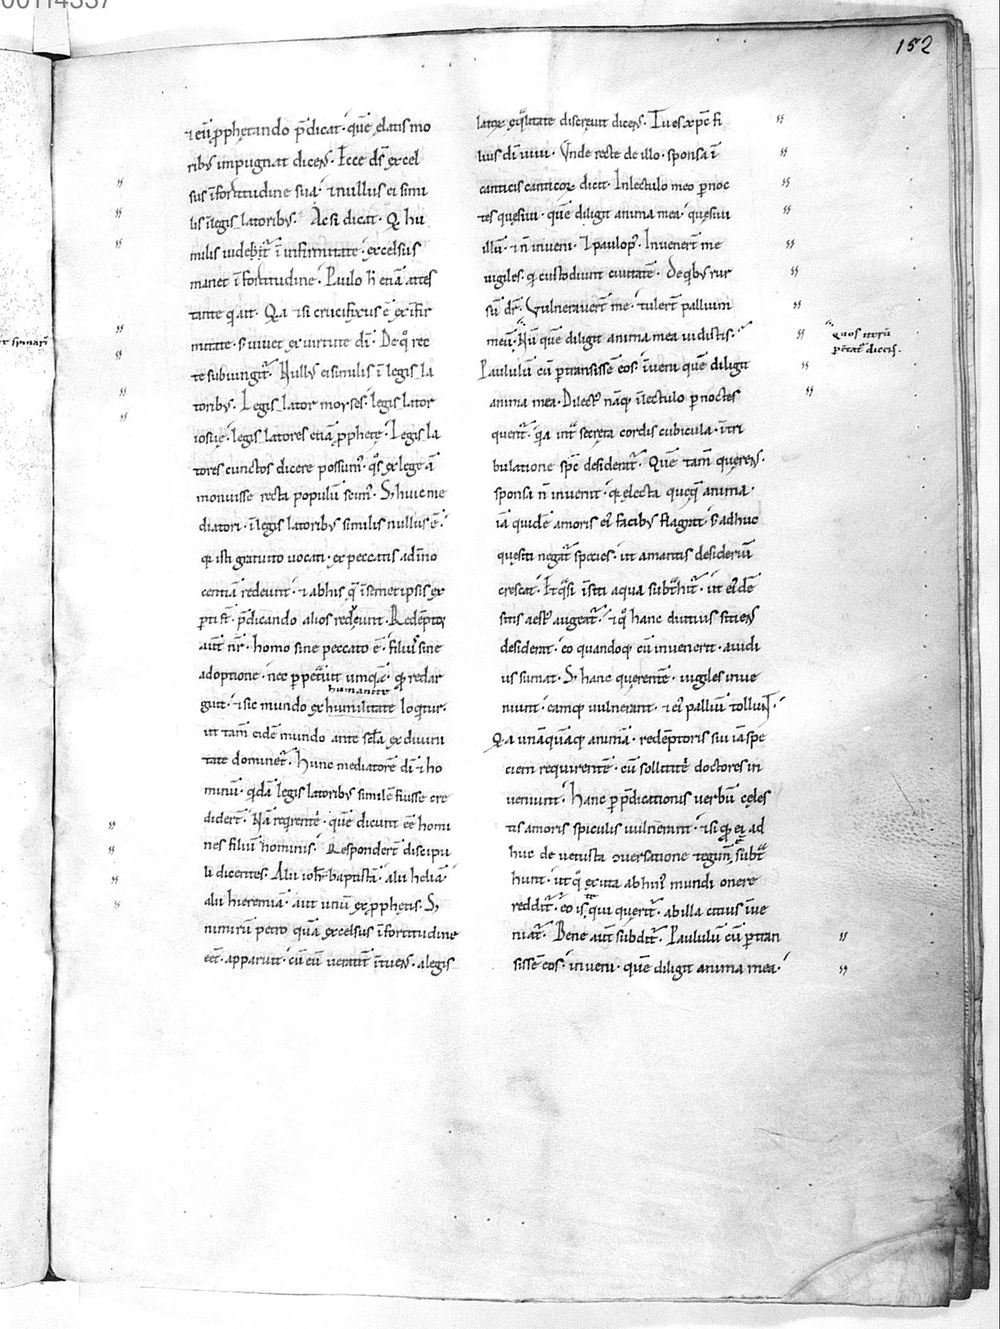 00114337
152
⁊ eũ ꝓphẹtando p̃dicat· quẽ elatis mo
ribꝰ impugnat dicens· Ecce dς̃ excel
sus ĩ fortitudine sua· ⁊ nullus ei simi
lis ĩ legis latoribꝰ· Ac si dicat· Q hu
milis uidebit̃ ĩ infirmitate· excelsus
manet ĩ fortitudine· Paulo h̃ etiã attes
tante q̃ ait· Q̃a ⁊si crucifixus ẽ ex ĩfir
mitate· s̃ uiuet ex uirtute dĩ· De q̊ rec
te subiungit̃· Nullꝰ ei similis ĩ legis la
toribꝰ· Legis lator moyses· legis lator
iosuẹ· legis latores etiã ꝓphetẹ· Legis la
tores cunctos dicere possumꝰ· q̊s ex lege ã
monuisse recta populũ scimꝰ· S; huic me
diatori· ĩ legis latoribꝰ similis nullus ẽ·
q̃ isti gratuito uocati· ex peccatis ad ĩno
centiã redeunt· ⁊ ab his q̃ ĩ semet ipsis ex
ꝑti st̃· p̃dicando alios reducunt· Redẽptor
aut̃ nr̃· homo sine peccato ẽ· filius sine
adoptione· nec ꝑpetrauit umquã· q̃ redar
humanitate
guit· ⁊ sic mundo ex humilitate loq̃tur·
ut tam̃ eidẽ mundo ante sẹc̃la ex diuini
tate dominet̃· Hunc mediatorẽ dĩ ⁊ ho
minũ· q̃dã legis latoribꝰ similẽ fuisse cre
didert̃· Nã req̃rente· quẽ dicunt eẽ homi
nes filiũ hominis· Respondert̃ discipu
li dicentes· Alii ioh̃ baptistã· alii heliã·
alii hieremiã· aut unũ ex ꝓphẹtis· S;
nimirũ petro quã excelsus ĩ fortitudine
eẽt· apparuit· cũ eũ ueraciter ĩtuens· a legis
latorẽ eq̃litate discreuit dicens· Tu es xp̃c fi
lius dĩ uiui· Vnde recte de illo· sponsa ĩ
canticis canticoꝝ dicit· In lectulo meo ꝑ noc
tes quẹsiui· quẽ diligit anima mea· quẹsiui
illũ· ⁊ ñ inueni· Et paulopꝰ· Inuenert̃ me
uigiles· q̃ custodiunt ciuitatẽ· De q̃bꝰ rur
sũ dr̃· Vulnerauert̃ me· tulert̃ pallium
meũ· Nũ quẽ diligit anima mea uidistis·
Paululũ cũ ꝑtransissẽ eos· ĩueni quẽ diligit
anima mea· Dilectꝰ nãq; ĩ lectulo ꝑ noctes
querit̃· q̃a int̃ secreta cordis cubicula· ĩ tri
bulatione sp̃c desiderat̃· Quẽ tam̃ querens·
sponsa ñ inuenit· q̃ electa quẹq; anima·
iã quidẽ amoris eiꝰ facibꝰ flagrat· s̃ adhuc
quẹsiti negat̃ species· ut amantis desideriũ
crescat· Et q̃si ĩ siti aqua subt̃hit̃· ut eiꝰdẽ
sitis aestꝰ augeat̃· ⁊ q̊ hanc diutius sitiens
desiderat· eo quandoq; cũ inuenerit· auidi
us sumat· S; hanc querentẽ· uigiles inue
niunt· eamq; uulnerant· ⁊ eiꝰ palliũ tollunt·
Q̃a unãquãq; animã· redẽptoris sui iã spe
ciem requirentẽ· cũ sollicite doctores in
ueniunt· hanc ꝑ p̃dicationis uerbũ cẹles
tis amoris spiculis uulnerant· ⁊ si q̃ ei ad
huc de uetusta ɔuersatione tegmen ẽ subt̃
hunt· ut q̃ exuta ab huiꝰ mundi onere
reddit̃· eo is qui querit̃· ab illa citius ĩue
niat̃· Bene aut̃ subdit̃· Paululũ cũ ꝑtran
sissẽ eos· inueni· quẽ diligit anima mea·
quos iterũ
ꝑcẽtat̃ dicens·